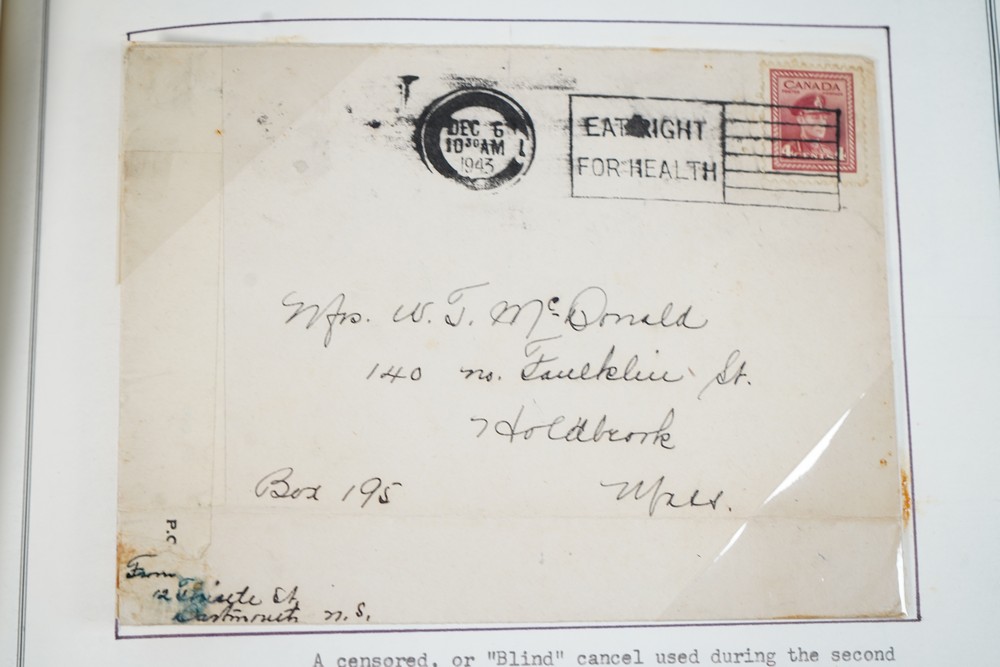 CANADA
DEC 6
10³⁰AM 1
1943
EAT RIGHT
FOR HEALTH
4 4
Mrs. W. T. McDonald
140 no. Faulklin St.
Holdbrook
Box 195 Mass.
P.C
From
12 St.
Dartmouth N.S.
A censored, or "Blind" cancel used during the second